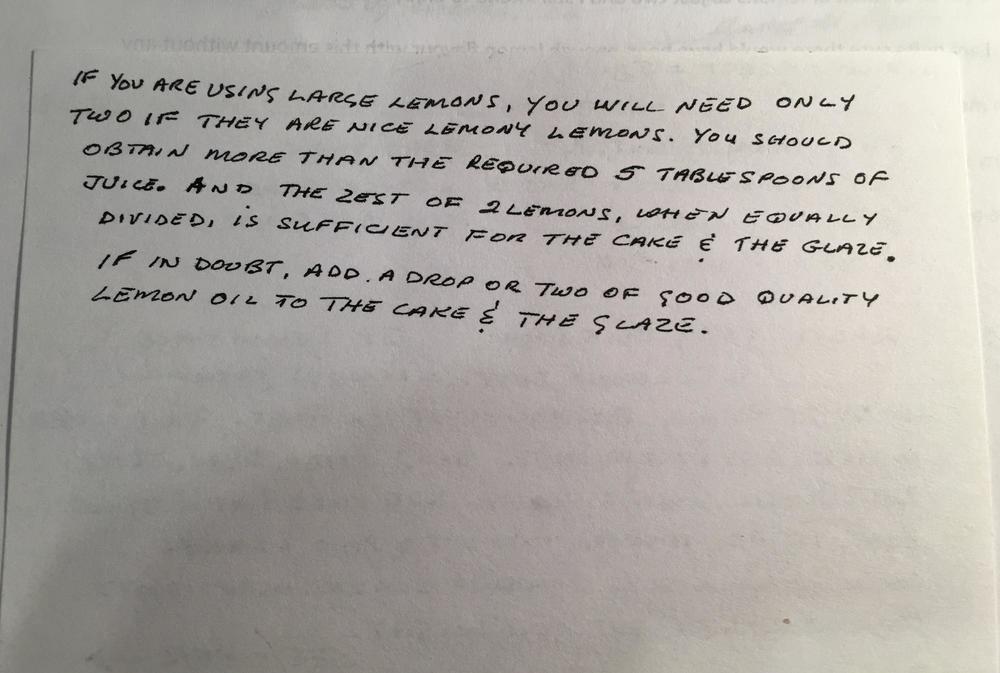 IF YOU ARE USING LARGE LEMONS, YOU WILL NEED ONLY
TWO IF THEY ARE NICE LEMONY LEMONS. YOU SHOULD
OBTAIN MORE THAN THE REQUIRED 5 TABLESPOONS OF
JUICE. AND THE ZEST OF 2 LEMONS, WHEN EQUALLY
DIVIDED, IS SUFFICIENT FOR THE CAKE & THE GLAZE.
IF IN DOUBT, ADD A DROP OR TWO OF GOOD QUALITY
LEMON OIL TO THE CAKE & THE GLAZE.